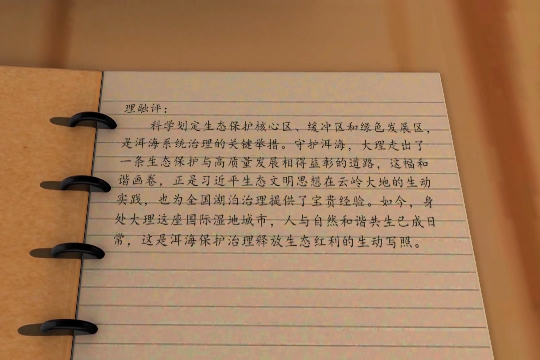 理融评：
科学划定生态保护核心区、缓冲区和绿色发展区，
是洱海系统治理的关键举措。守护洱海，大理走出了
一条生态保护与高质量发展相得益彰的道路，这幅和
谐画卷，正是习近平生态文明思想在云岭大地的生动
实践，也为全国湖泊治理提供了宝贵经验。如今，身
处大理这座国际湿地城市，人与自然和谐共生已成日
常，这是洱海保护治理释放生态红利的生动写照。